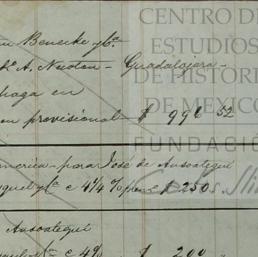 CENTRO DE
ESTUDIOS
DE HISTORIA
DE MEXICO
FUNDACIÓ
Carlos Sli
Benecke y Ca.
A. Newton - Guadalajara -
haga en
provisional $ 996 52
America - para José de Ansoategui
y Ca c 4 1/4 % $ 250
Ansoategui
c 4% $ 200